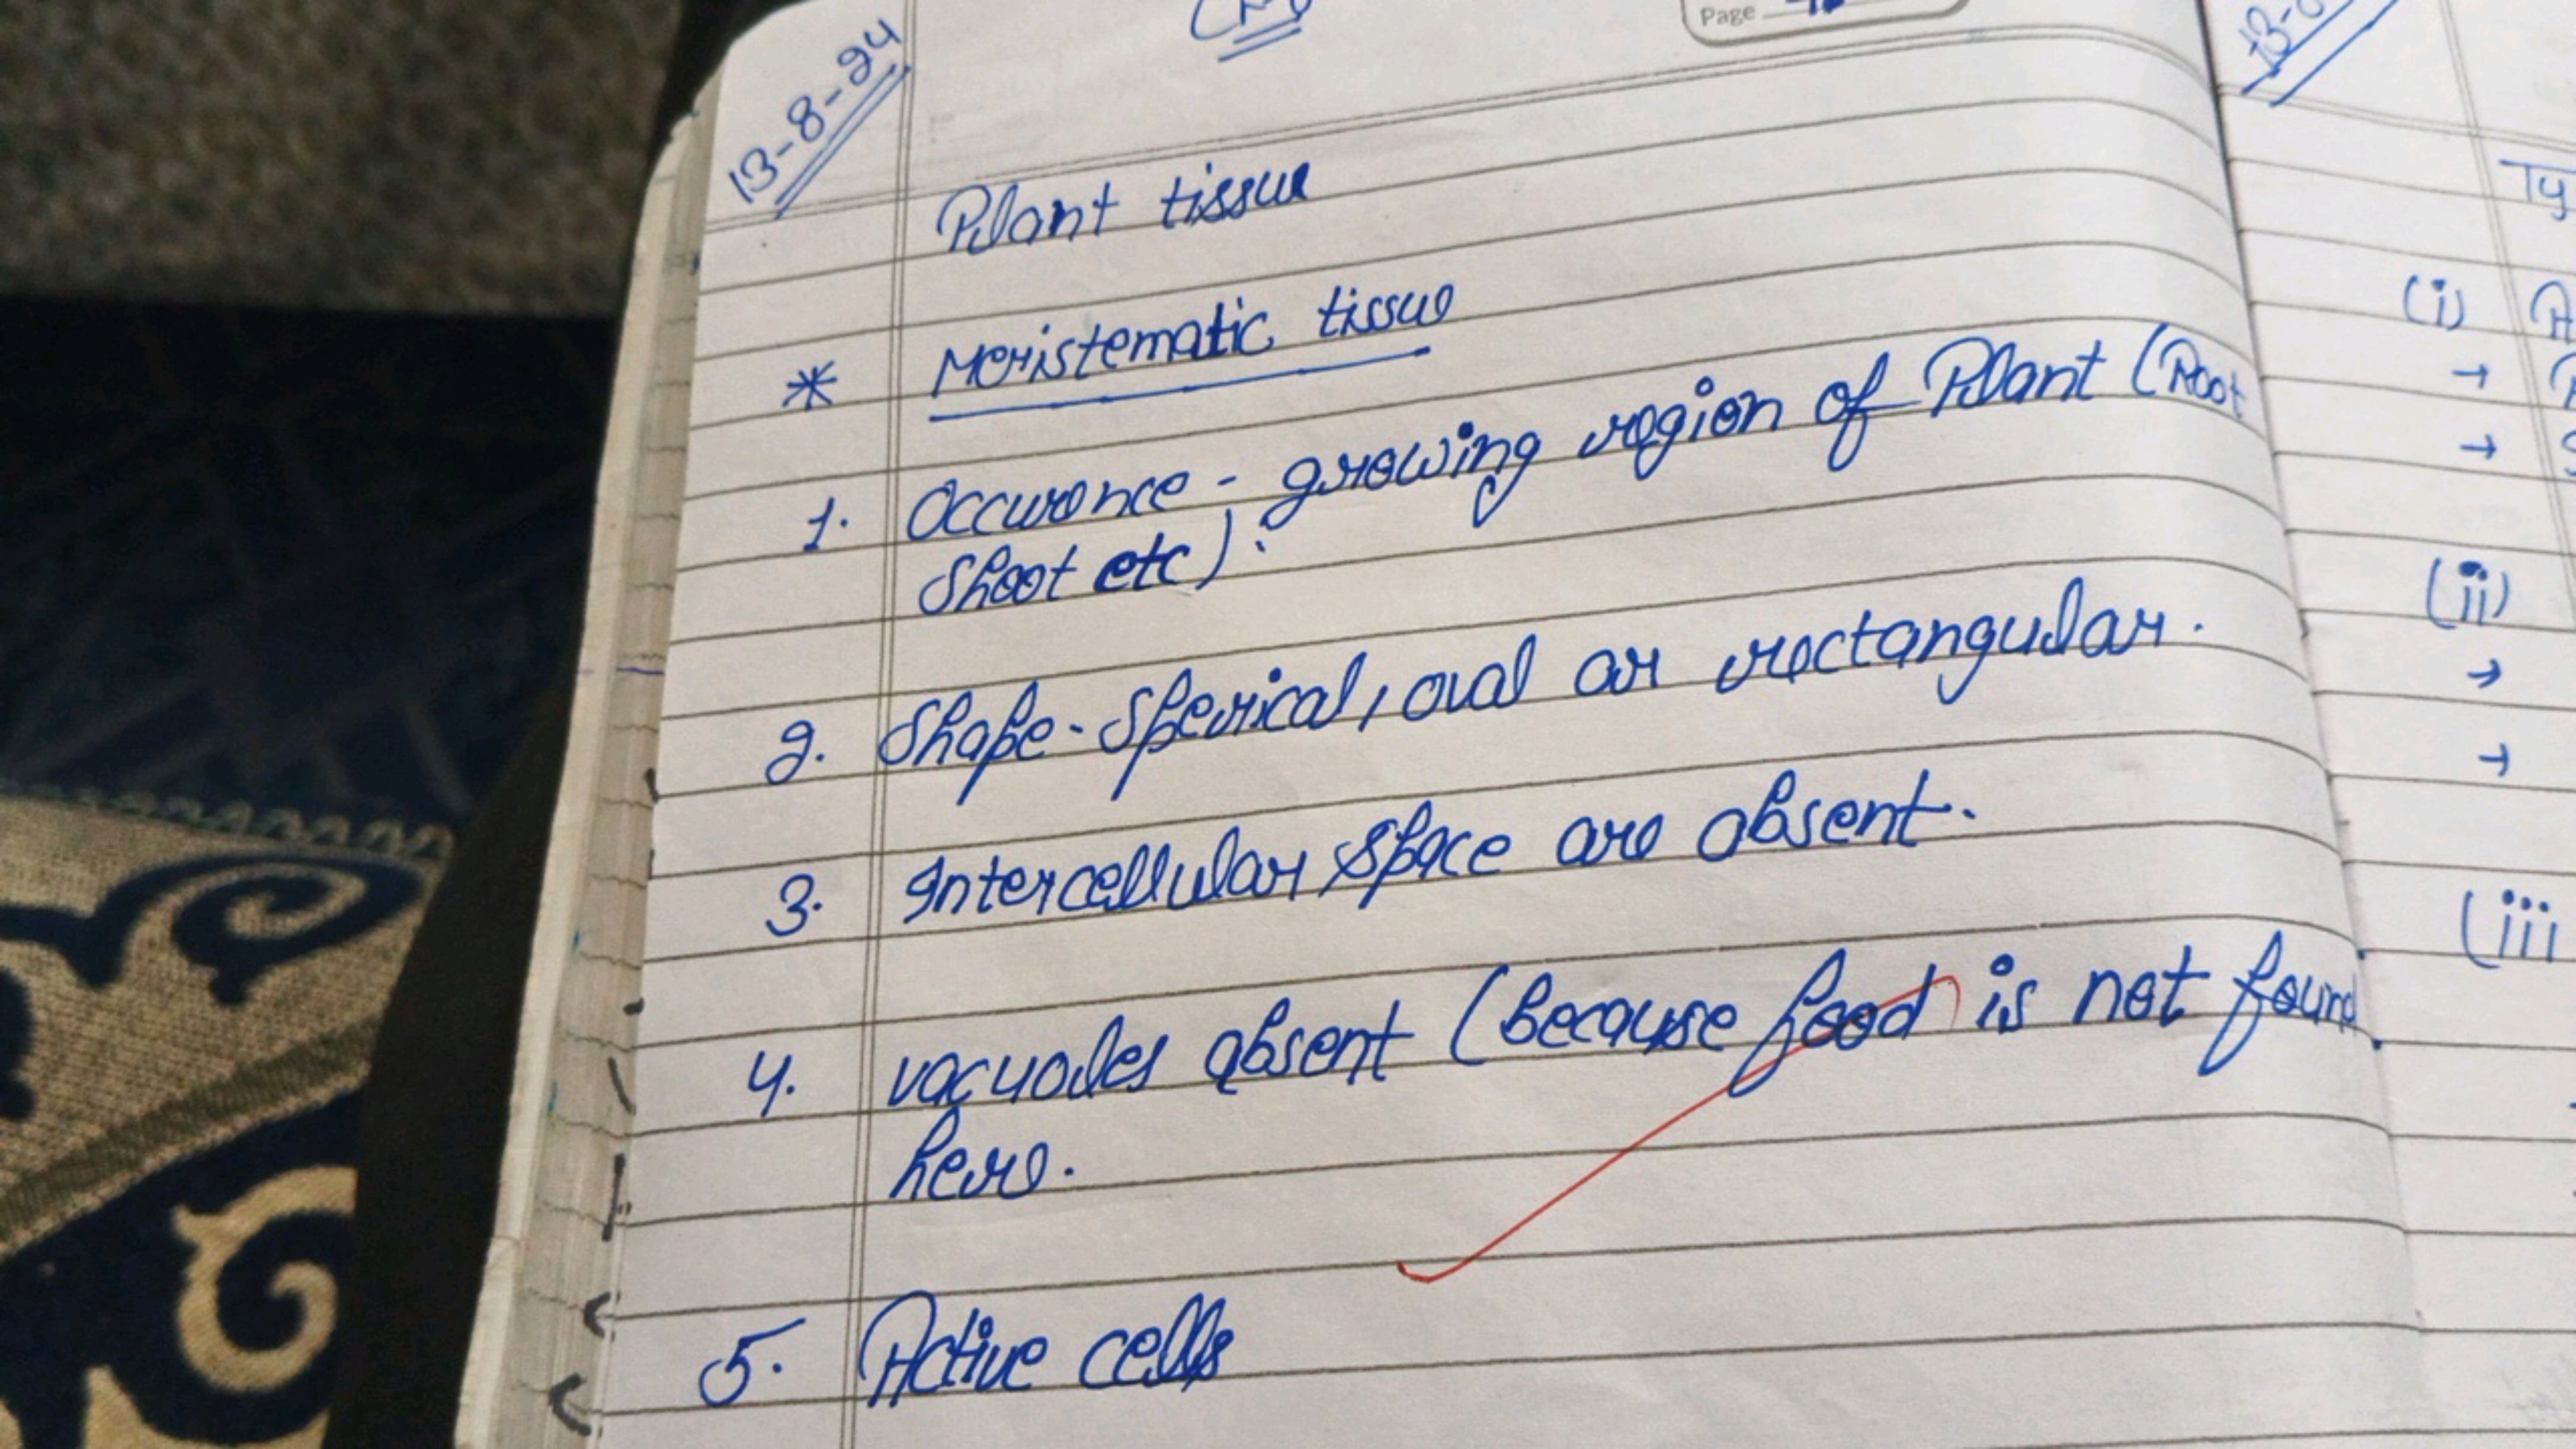 13-8-24
Page
Plant tissue
* Meristematic tissue
1. Occurence - growing region of Plant (Root
Shoot etc).
2. Shape - Sperical, oval or rectangular.
3. Intercellular space are absent.
4. vacuoles absent (because food is not found
here.
5. Active cells
Ty
(i)
→
→
(ii)
→
→
(iii